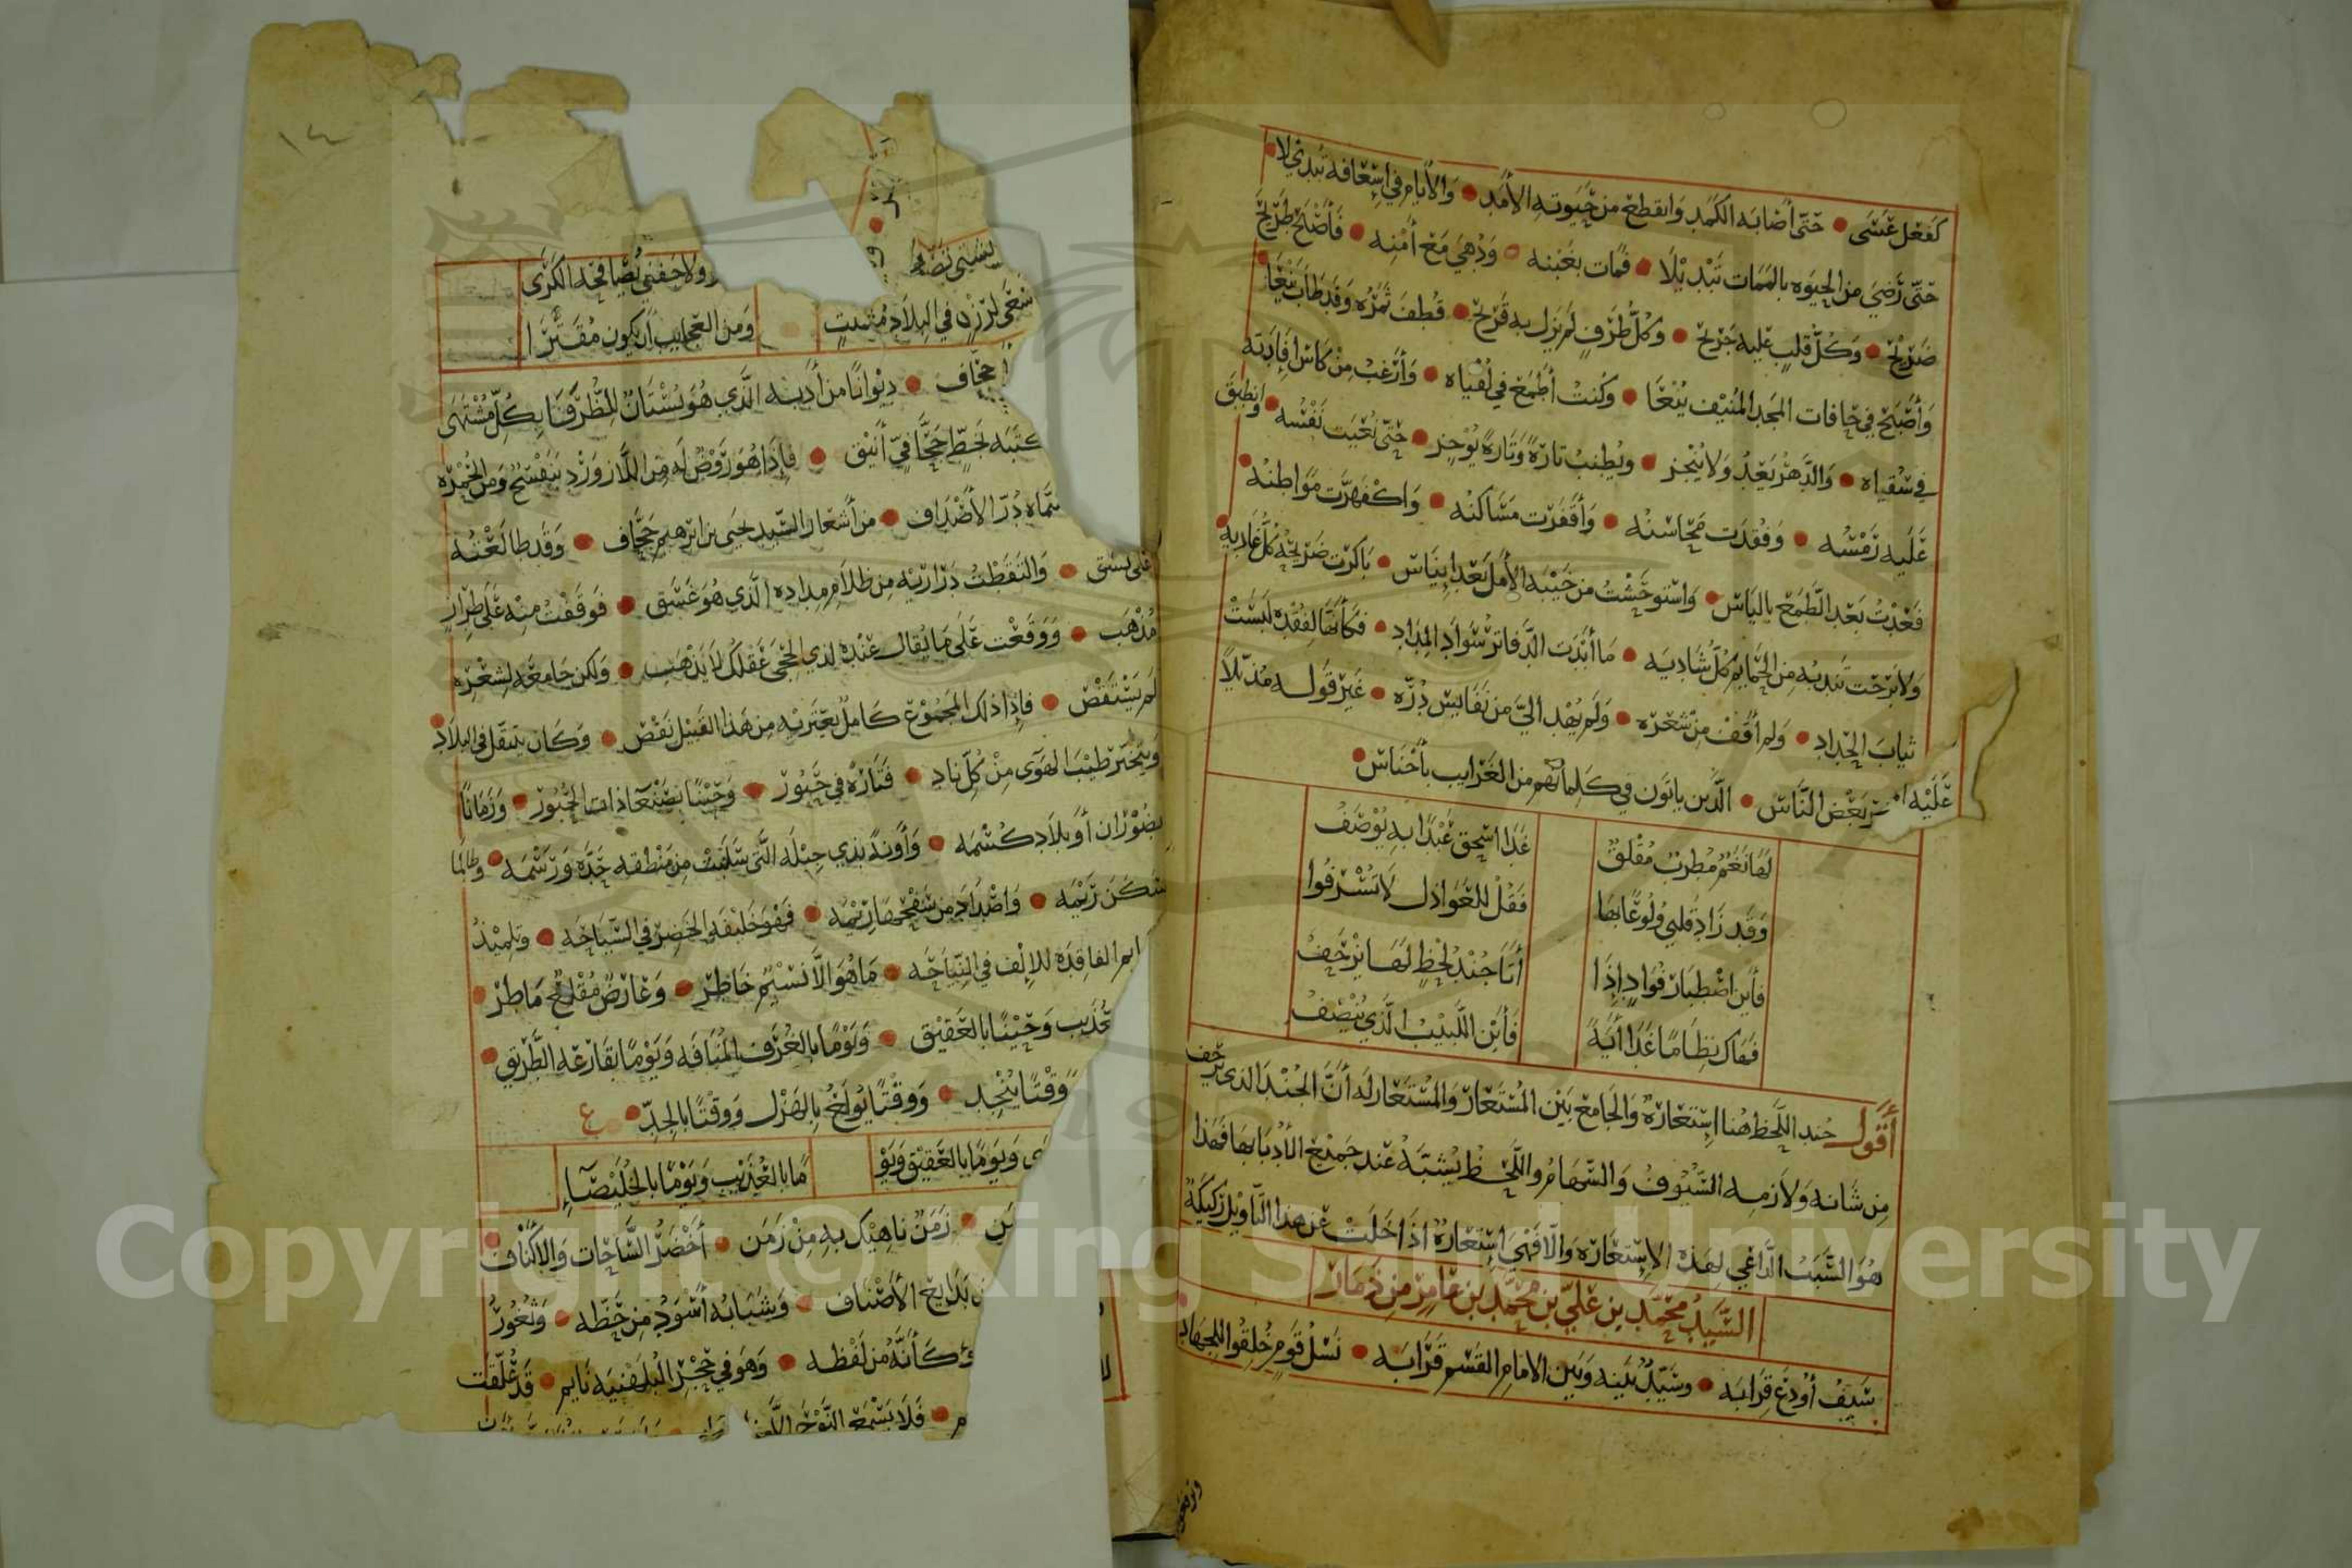 كفعل عسى • حتى أصابه الكمد وانقطع من حيوته الأمد • والأيام في إسعافه تبدي لا •
حتى رضي من الحيوه بالممات تبديلا • فمات بغبنه • ودهي مع أمنه • فأصبح طريح
ضريح • وكل قلب عليه جريح • وكل طرف لم يزل به قريح • قطف ثمره وقد طاب ينعا •
وأصبح في حافات المجد المنيف ينعا • وكنت أطمع في لقياه • وأرغب من كاس إفادته
في سقياه • والدهر يعد ولا ينجز • ويطنب تارة وتارة يوجز • حتى نعيت نفسه • وانطبق
عليه رمسه • وفقدت محاسنه • وأقفرت مساكنه • واكفهرت مواطنه •
فعدت بعد الطمع بالياس • واستوحشت من خيبه الأمل بعد إيناس • باكرت ضريحه كل غاديه •
ولا برحت تندبه من الحمايم كل شاديه • ما أبدت الدفاتر سواد المداد • فكأنها لفقده لبست
ثياب الحداد • ولم أقف من شعره • ولم يهد الي من نفايس درّه • غير قوله مذيلا
عليه بعض الناس • الذين ياتون في كلماتهم من الغرايب بأجناس •
لها نغم مطرب مقلق غدا اسحق عبدا به يوصف
وقد زاد قلبي ولوعا بها فقل للعواذل لا تسرفوا
فأين اصطبار فواد إذا أتا جند لحظ لها يزحف
فهاك نظاما غدا أية فأين اللبيب الذي ينصف
أقول جند اللحظ هنا استعارة والجامع بين المستعار والمستعار له أن الجند الذي يزحف
من شانه ولازمه السيوف والسهام واللحظ يشبه عند جميع الأدبا بها فهذا
هو السبب الداعي لهذه الإستعاره والا فهي إستعارة اذا خلت عن هذا التاويل ركيكة
السيد محمد بن علي بن محمد بن عامر من ذمار
سيف أودع قرابه • وسيد بينه وبين الامام القسم قرابه • نسل قوم خلقوا للجهاد •
ولا جفني يصافحه الكرى
سعى لرزق في البلاد مشتت ومن العجايب أن يكون مقترا
جحاف • ديوانا من أدبه الذي هو بستان للظرفا بكل مشتهى
كتبه لخط جحافي أنيق • فإذا هو روض له من اللازورد بنفسج ومن الحمره
سماه درّ الأصداف • من أشعار السيد يحيى بن ابرهيم جحاف • وقد طالعته
على نسق • والتقطت دراريه من ظلام مداده الذي هو غسق • فوقفت منه على طراز
مذهب • ووقعت على ما يقال عنده لذي الحجى عقلك لا يذهب • ولكن جامعه لشعره
لم يستقض • فإذا ذلك المجموع كامل يعتريه من هذا القبيل نقص • وكان يتنقل في البلاد •
ويتخير طيب الهوى من كل ناد • فتارة في حبور • وحينا بصنعا ذات الحبور • وزمانا
بضوران أو بلاد كسمه • وأونة بذي جبله التي سلبت من منطقه جده ورسمه • وطالما
سكن ريمه • واصطاد من سفحها ريمه • فهو خليفه الخضر في السياحه • وتلميذ
الفاقده للإلف في النياحه • ما هو الا نسيم خاطر • وعارض مقلع ماطر •
وحينا بالعقيق • ويوما بالغرف المنافه ويوما بقارعه الطريق •
وقتا ينجد • ووقتا يولع بالهزل ووقتا بالجد • ع
ويوما بالعقيق ويو ما بالعذيب ويوما بالخليصاء
• زمن ناهيك به من زمن • أخضر الساحات والاكناف •
بدايع الأصناف • وشبابه أسود من حظه • وثغور
كأنه من لفظه • وهو في حجر البلهنيه نايم • قد علقت
• فلا يسمع النوح